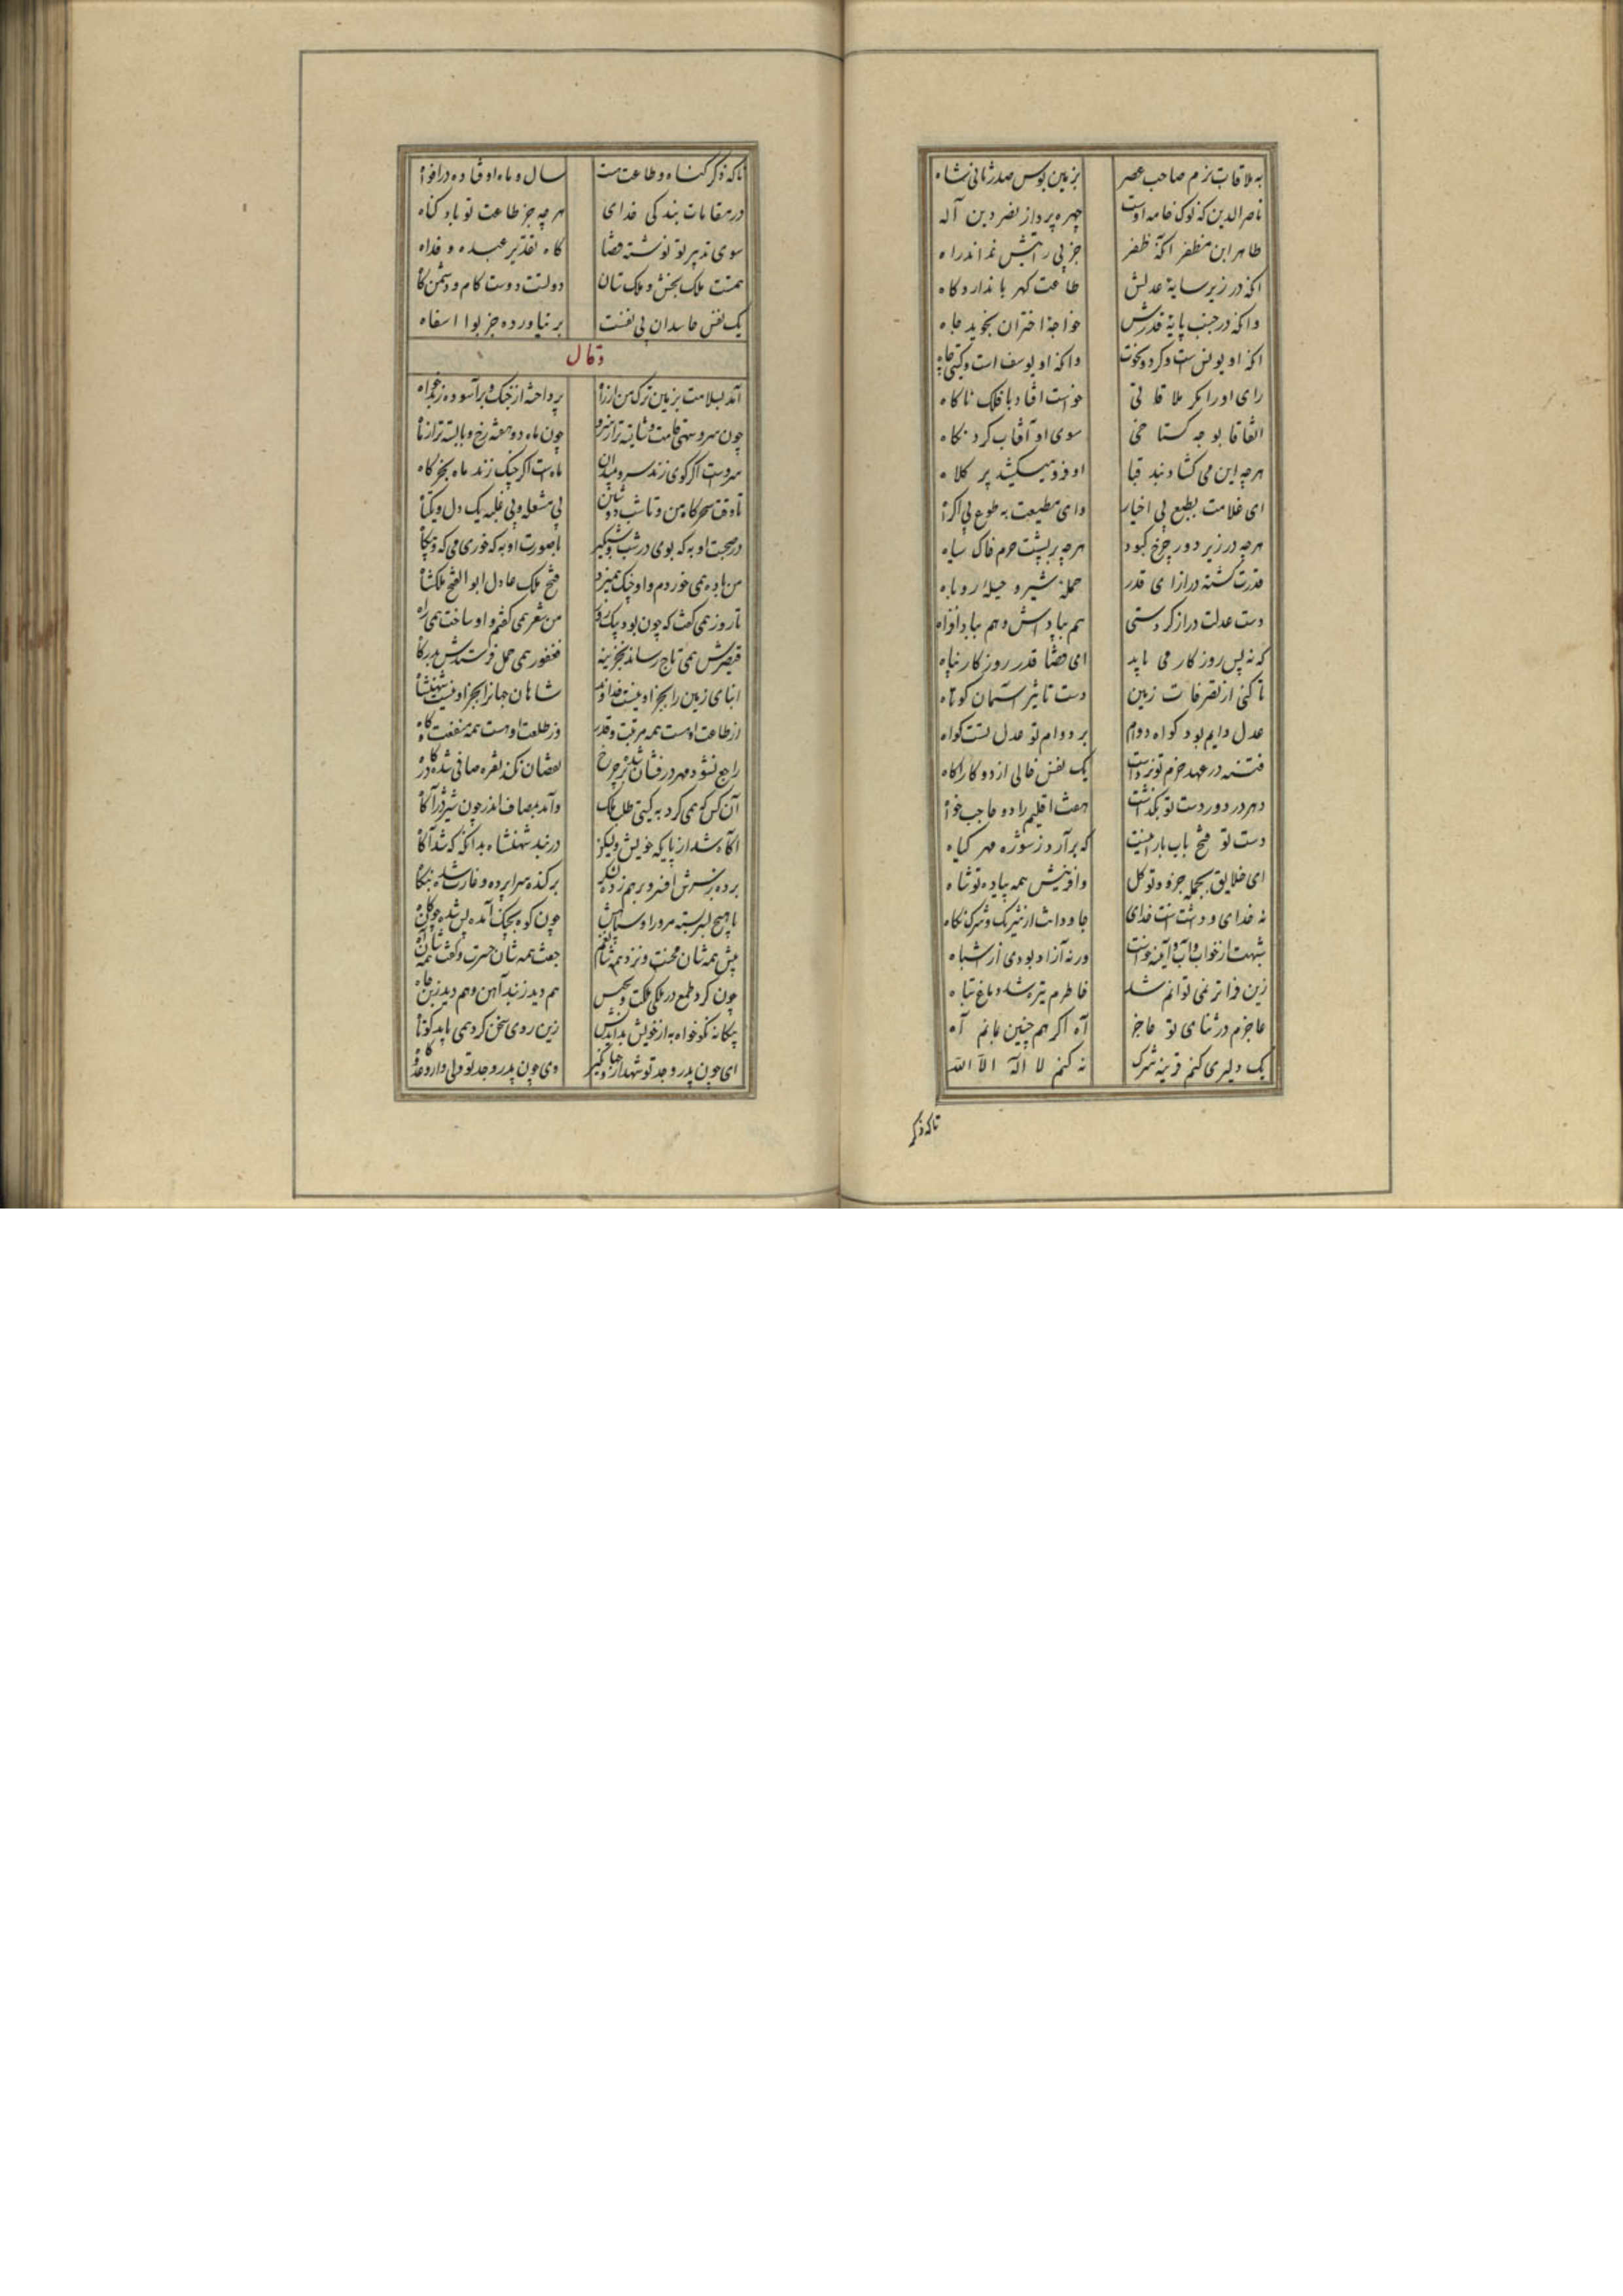 به ملاقات بزم صاحب عصر بزمین بوس صدر ثانی شاه
ناصر الدین که نوک خامه اوست چهره پرداز نصر دین آله
طاهر ابن مظفر آنکه ظفر جز پی رایتش نماند راه
آنکه در زیر سایهٔ عدلش طاعت کهربا ندارد کاه
وانکه در جنب پایهٔ قدرش خواجهٔ اختران نجوید جاه
آنکه او یونس است و گردون حوت وانکه او یوسف است و گیتی چاه
رای او را مکر ملاقاتی خواست افتاد با فلک ناکاه
اتفاقا بوجه کستاخی سوی او آفتاب کرد نکاه
هرچه این می کشاد بند قبا او فرو میکشید پر کلاه
ای غلامت بطبع بی اخبار وای مطیعت به طوع بی اکراه
هرچه در زیر دور چرخ کبود هرچه بر پشت جرم خاک سیاه
قدرت کشته در ازای قدر حملهٔ شیر و حیلهٔ روباه
دست عدلت دراز کردستی هم بپاداش و هم ببادافراه
که نه پس روز کار می باید ای قضا قدر روزکار پناه
تا کنی از تصرفات زمین دست تاثیر آسمان کوتاه
عدل دایم بود کواه دوام بر دوام تو عدل تست کواه
فتنه در عهد حزم تو نزدست یک نفس خالی از دو کار اکاه
دهر در دور دست تو نکذاشت هفت اقلیم را دو حاجب خواه
دست تو فتح باب بارانیست که برآرد ز شوره مهر کیاه
ای خلایق بجمله جزو و تو کل وافرینش همه پیاده تو شاه
نه خدای و دست تست خدای جاودانت از شریک و شرک نکاه
شبهت از خواب و آب و آینه خاست ورنه آزاد بودی از اشباه
زین فراتر نمی توانم شد خاطرم تیره شد دماغ تباه
عاجزم در ثنای تو عاجز آه اکر همچنین بمانم آه
یک دلیری کنم قرینه شرک نه کنم لا اله الا الله
تاکه ذکر
تاکه ذکر کناه و طاعت هست سال و ماه اوفتاده در افواه
در مقامات بندکی خدای هرچه جز طاعت تو باد کناه
سوی تدبیر تو نوشته قضا کاه تقدیر عبده و فداه
همتت ملک بخش و ملک ستان دولتت دوست کام و دشمن کاه
یک نفس حاسدان بی نفست بر نیاورده جز بوا اسفاه
وقال
آمد بسلامت بر من ترک من از راه پرداخته از جنک و برآسوده ز بدخواه
چون سرو سهی قامت و شایسته تر از سرو چون ماه دوهفته رخ و بایسته تر از ماه
سروست اکر کوی زند سرو بمیدان ماهست اکر چنک زند ماه بخرکاه
تا وقت سحرکاه من و تا شب دوشین بی مشعله و بی غلبه یک دل و یکتاه
در صحبت او به که بوی در شب شبکیر با صورت او به که خوری می که و بیکاه
من باده همی خوردم و او چنک همیزد فتح ملک عادل ابوالفتح ملکشاه
تا روز همی کفت که چون بود و من شعر همی کفتم و او ساخت همی راه
قیصرش همی تاج رساند بخزینه فغفور همی حمل فرستدش بدرکاه
ابنای زمین را بجز او نیست خداوند شاهان جهانرا بجز او نیست شهنشاه
از طاعت او هست همه مرتبت و قدر وز طلعت او هست همه منفعت و کاه
راجع نشود مهر درفشان شده بر چرخ نقصان نکند نقره صافی شده در کاه
آن کس که همی کرد به کیتی طلب ملک وآمد بمصاف اندر چون شیر درآکاه
آکاه شد از پایکه خویش ولیکن در بند شهنشاه بدانکه که شد آکاه
برده ز سرش افسر و بر هم زده لشکر برکنده سراپرده و غارت شده بنکاه
با هیچ بسر بسته مر او را و سپاهش چون کوه بجنک آمده پس شده چون کاه
پیش همه شان محنت و نزد همه شان غم جفت همه شان حسرت و کفت همه شان آه
چون کرد طمع در ملکی ملکت و مجلس هم دید ز بند آهن و هم دید ز بن چاه
بیکانه نکوخواه به از خویش بداندیش زین روی سخن کرد همی باید کوتاه
ای چون پدر و جد تو شهدار جهانکیر وی چون پدر و جد تو ولی دار و عدو کاه